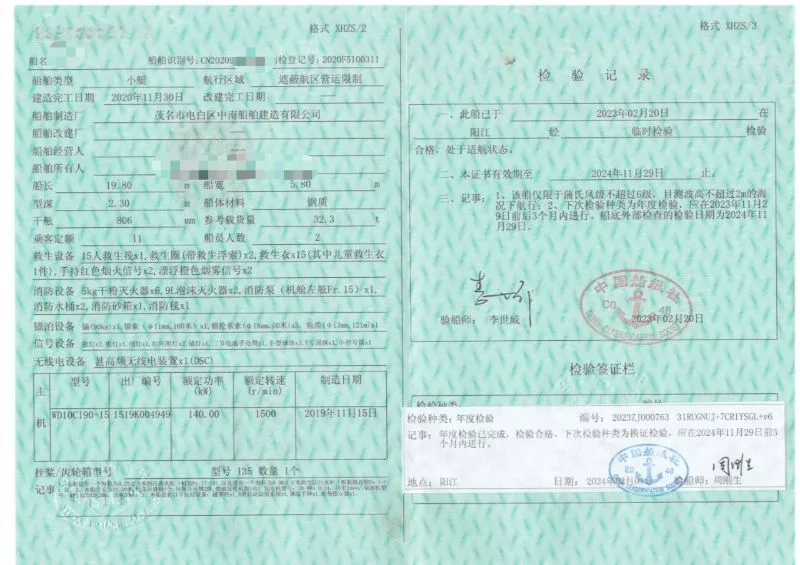 格式 XHZS/2
船名
船舶识别号:CN20209
检登记号:2020F5100311
船舶类型 小艇 航行区域 遮蔽航区营运限制
建造完工日期 2020年11月30日 改建完工日期
船舶制造厂 茂名市电白区中南船舶建造有限公司
船舶改建厂
船舶经营人
船舶所有人
船长 19.80 m 船宽 5.80 m
型深 2.30 m 船体材料 钢质
干舷 806 mm 参考载货量 32.3 t
乘客定额 11 船员人数 2
救生设备 15人救生筏x1,救生圈(带救生浮索)x2,救生衣x15(其中儿童救生衣
1件),手持红色烟火信号x2,漂浮橙色烟雾信号x2
消防设备 5kg干粉灭火器x6,9L泡沫灭火器x2,消防泵(机舱左舷Fr.15)x1,
消防水桶x2,消防砂箱x1,消防毯x1
锚泊设备 锚(90kg)x1,锚索(φ11mm,160米)x1,
信号设备
无线电设备 甚高频无线电装置x1(DSC)
主机
型号 出厂编号 额定功率(kW) 额定转速(r/min) 制造日期
WD10C190-15 1519K004949 140.00 1500 2019年11月15日
挂桨/齿轮箱型号 型号 135 数量 1个
记事
格式 XHZS/3
检验记录
一、此船已于 2023年02月20日 在
阳江 经 临时检验 检验
合格,处于适航状态,
二、本证书有效期至 2024年11月29日 止。
三、记事: 1、该船仅限于蒲氏风级不超过6级,目测波高不超过2m的海
况下航行;2、下次检验种类为年度检验,应在2023年11月
29日前后3个月内进行。船底外部检查的检验日期为2024年11
月29日。
中国船级社
验船师: 李世威 2023年02月20日
检验签证栏
检验种类 编号
检验种类:年度检验 编号:2023ZJ000763 31RUGNUJ+7CR1YSGL+v6
记事:年度检验已完成,检验合格。下次检验种类为换证检验,应在2024年11月29日前3
个月内进行。
中国船级社
地点:阳江 日期: 验船师:周刚生